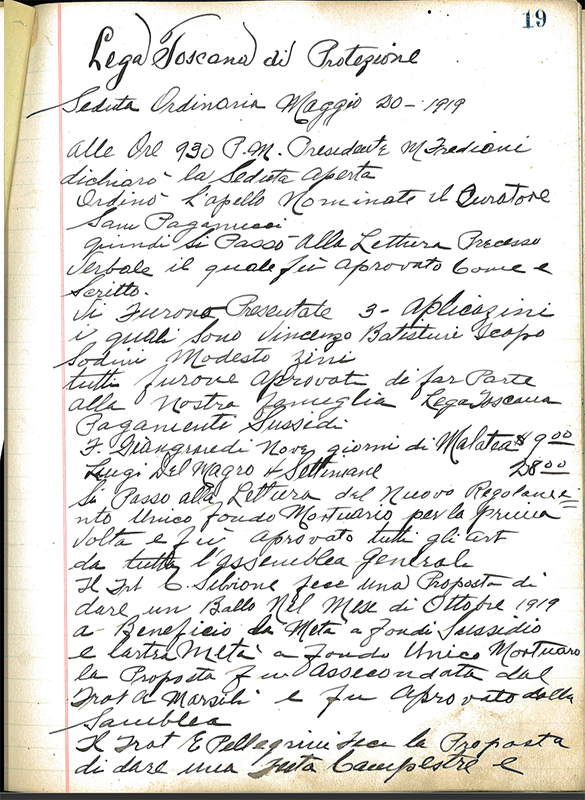 19
Lega Toscana di Protezione
Seduta Ordinaria Maggio 20 - 1919
Alle Ore 930 P.M. Presidente M Fredioni
dichiarò la Seduta Aperta
Ordinò L'apello Nominate il Curatore
Sam Paganucci
quindi Si Passò Alla Lettura Processo
Verbale il quale fù Aprovato Come e
Scritto.
Vi Furono Presentate 3 - Aplicazini
i quali Sono Vincenzo Batistini
Sodini Modesto Zini
tutti furone Aprovati di far Parte
alla Nostra Fameglia Lega Toscana
Pagamenti Sussidi
F. Giangrandi Nove giorni di Malatea $ 9 00
Luigi Del Magro 4 Settimane 28 00
Si Passo alla Lettura del Nuovo Regolame-
nto Unico fondo Mortuario per la prima
Volta e fù aprovato tutti gli art
da tutta l'assemblea General
Il Frt C. Silvione fece una Proposta di
dare un Ballo Nel Mese di Ottobre 1919
a Beneficio da Metà a Fondi Sussidio
e lartra Metà a Fondo Unico Mortuaro
la Proposta fu Assecondata dal
Frat A Marsili e fu Aprovato dalla
Samblea
Il Frat E Pellegrini Fece la Proposta
di dare una Festa Campestre e